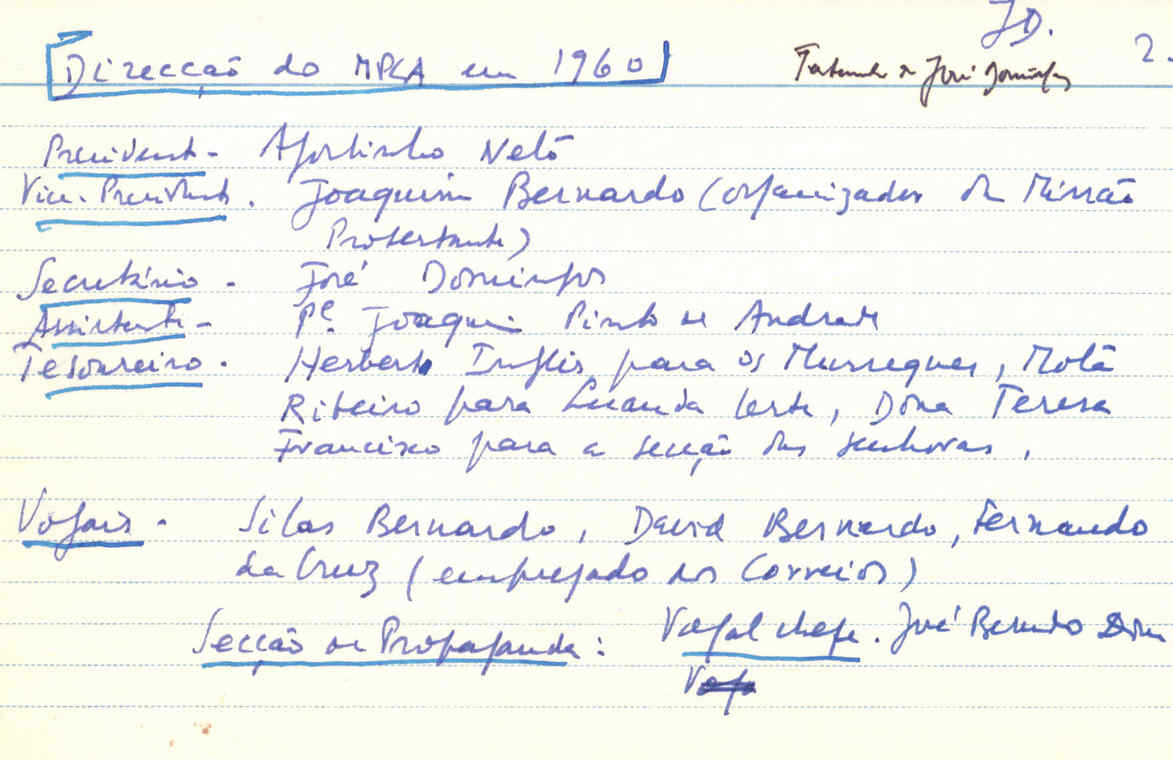 JD.
2.
Direcção do MPLA em 1960
José Domingos
Presidente - Agostinho Neto
Vice-Presidente. Joaquim Bernardo (organizador da Missão
Protestante)
Secretário - José Domingos
Assistente - Pe. Joaquim Pinto de Andrade
Tesoureiro. Herberto Inglês para os Musseques, Mota
Ribeiro para Luanda leste, Dona Teresa
Francisco para a secção das senhoras.
Vogais - Silas Bernardo, David Bernardo, Fernando
da Cruz (empregado dos Correios)
Secção de Propaganda: Vogal chefe. José Bernardo